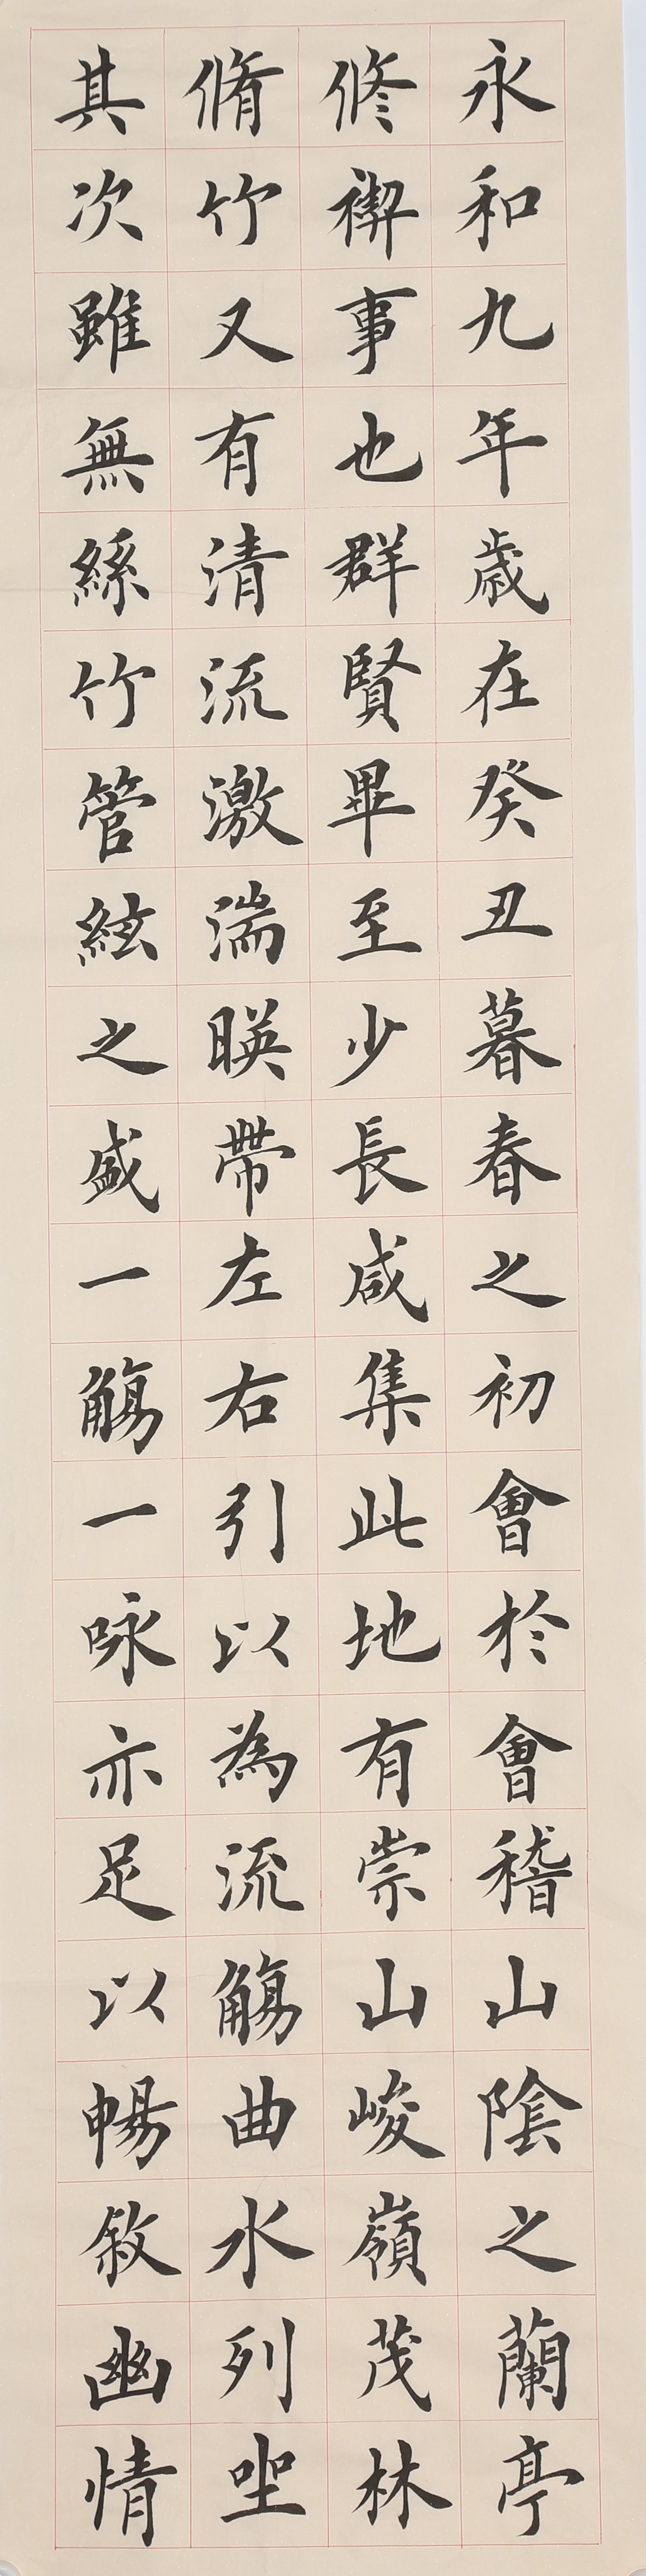 永和九年歲在癸丑暮春之初會於會稽山陰之蘭亭
修禊事也群賢畢至少長咸集此地有崇山峻嶺茂林
脩竹又有清流激湍暎帶左右引以為流觴曲水列坐
其次雖無絲竹管絃之盛一觴一咏亦足以暢敘幽情